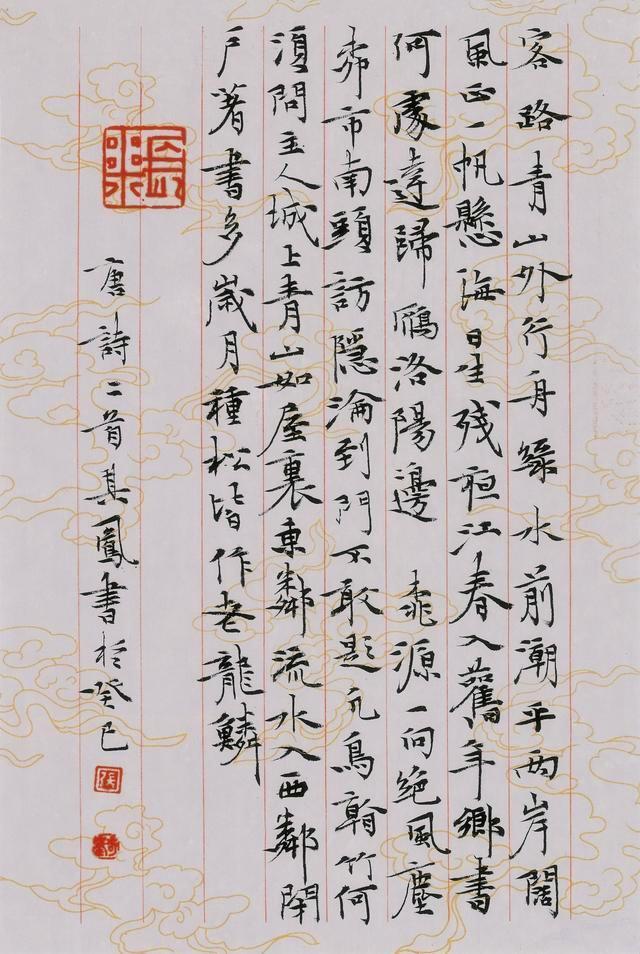 客路青山外行舟綠水前潮平兩岸闊
風正一帆懸海日生残夜江春入舊年鄉書
何處達歸鴈洛陽邊 桃源一向絕風塵
柳市南頭訪隱淪到門不敢題凡鳥看竹何
須問主人城上青山如屋裏東鄰流水入西鄰閉
戶著書多歲月種松皆作老龍鱗
唐詩二首其鳳書於癸巳
張